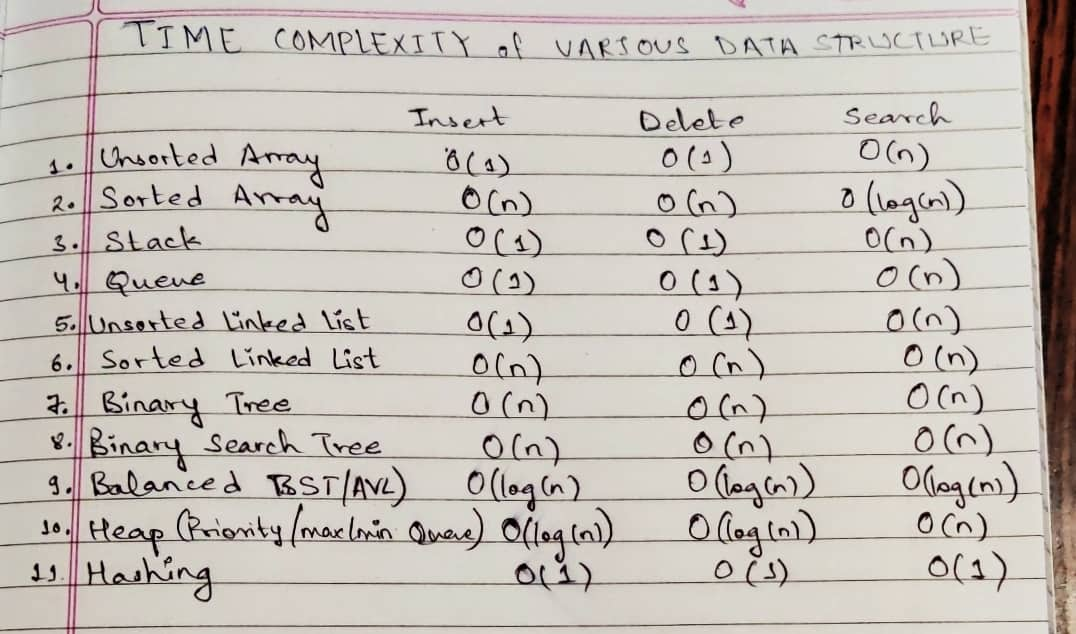 TIME COMPLEXITY of VARIOUS DATA STRUCTURE
Insert Delete Search
1. Unsorted Array O(1) O(1) O(n)
2. Sorted Array O(n) O(n) O(log(n))
3. Stack O(1) O(1) O(n)
4. Queue O(1) O(1) O(n)
5. Unsorted Linked List O(1) O(1) O(n)
6. Sorted Linked List O(n) O(n) O(n)
7. Binary Tree O(n) O(n) O(n)
8. Binary Search Tree O(n) O(n) O(n)
9. Balanced BST/AVL) O(log(n) O(log(n)) O(log(n))
10. Heap (Priority/max/min Queue) O(log(n)) O(log(n)) O(n)
11. Hashing O(1) O(1) O(1)